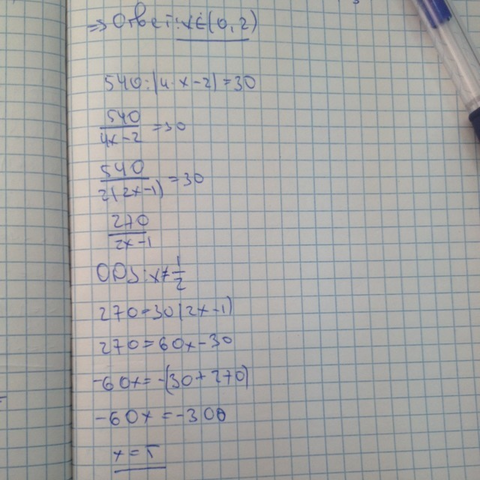 => Ответ: x∈(0,2)
540:|4·x-2|=30
540/4x-2=30
540/2(2x-1)=30
270/2x-1
ОДЗ: x≠1/2
270=30(2x-1)
270=60x-30
-60x=-(30+270)
-60x=-300
x=5